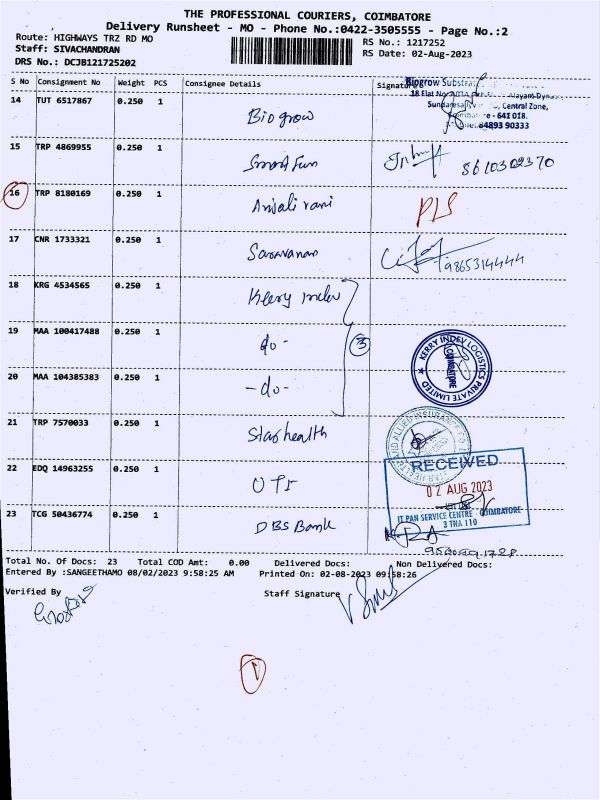 THE PROFESSIONAL COURIERS, COIMBATORE
Delivery Runsheet - MO - Phone No.:0422-3505555 - Page No.:2
Route: HIGHWAYS TRZ RD MO
RS No.: 1217252
Staff: SIVACHANDRAN
RS Date: 02-Aug-2023
DRS No.: DCJB121725202
S No Consignment No Weight PCS Consignee Details Signature
Biogrow Substrat
Sundaresa , Central Zone,
- 641 018.
84893 90333
14 TUT 6517867 0.250 1 Biogrow
15 TRP 4869955 0.250 1 Smart Fun 8610302370
16 TRP 8180169 0.250 1 Anjali rani PLS
17 CNR 1733321 0.250 1 Saravanan 9865314444
18 KRG 4534565 0.250 1 Kerry Indev
19 MAA 100417488 0.250 1 do - 3
KERRY INDEV LOGISTICS PRIVATE LIMITED
COIMBATORE
20 MAA 104385383 0.250 1 -do-
21 TRP 7570033 0.250 1 Starhealth
STAR HEALTH AND ALLIED INSURANCE CO
22 EDQ 14963255 0.250 1 UTI
RECEIVED
02 AUG 2023
IT PAN SERVICE CENTRE - COIMBATORE
3 TNA 110
23 TCG 50436774 0.250 1 DBS Bank
Total No. Of Docs: 23 Total COD Amt: 0.00 Delivered Docs: Non Delivered Docs:
Entered By :SANGEETHAMO 08/02/2023 9:58:25 AM Printed On: 02-08-2023 09:58:26
Verified By Staff Signature
1